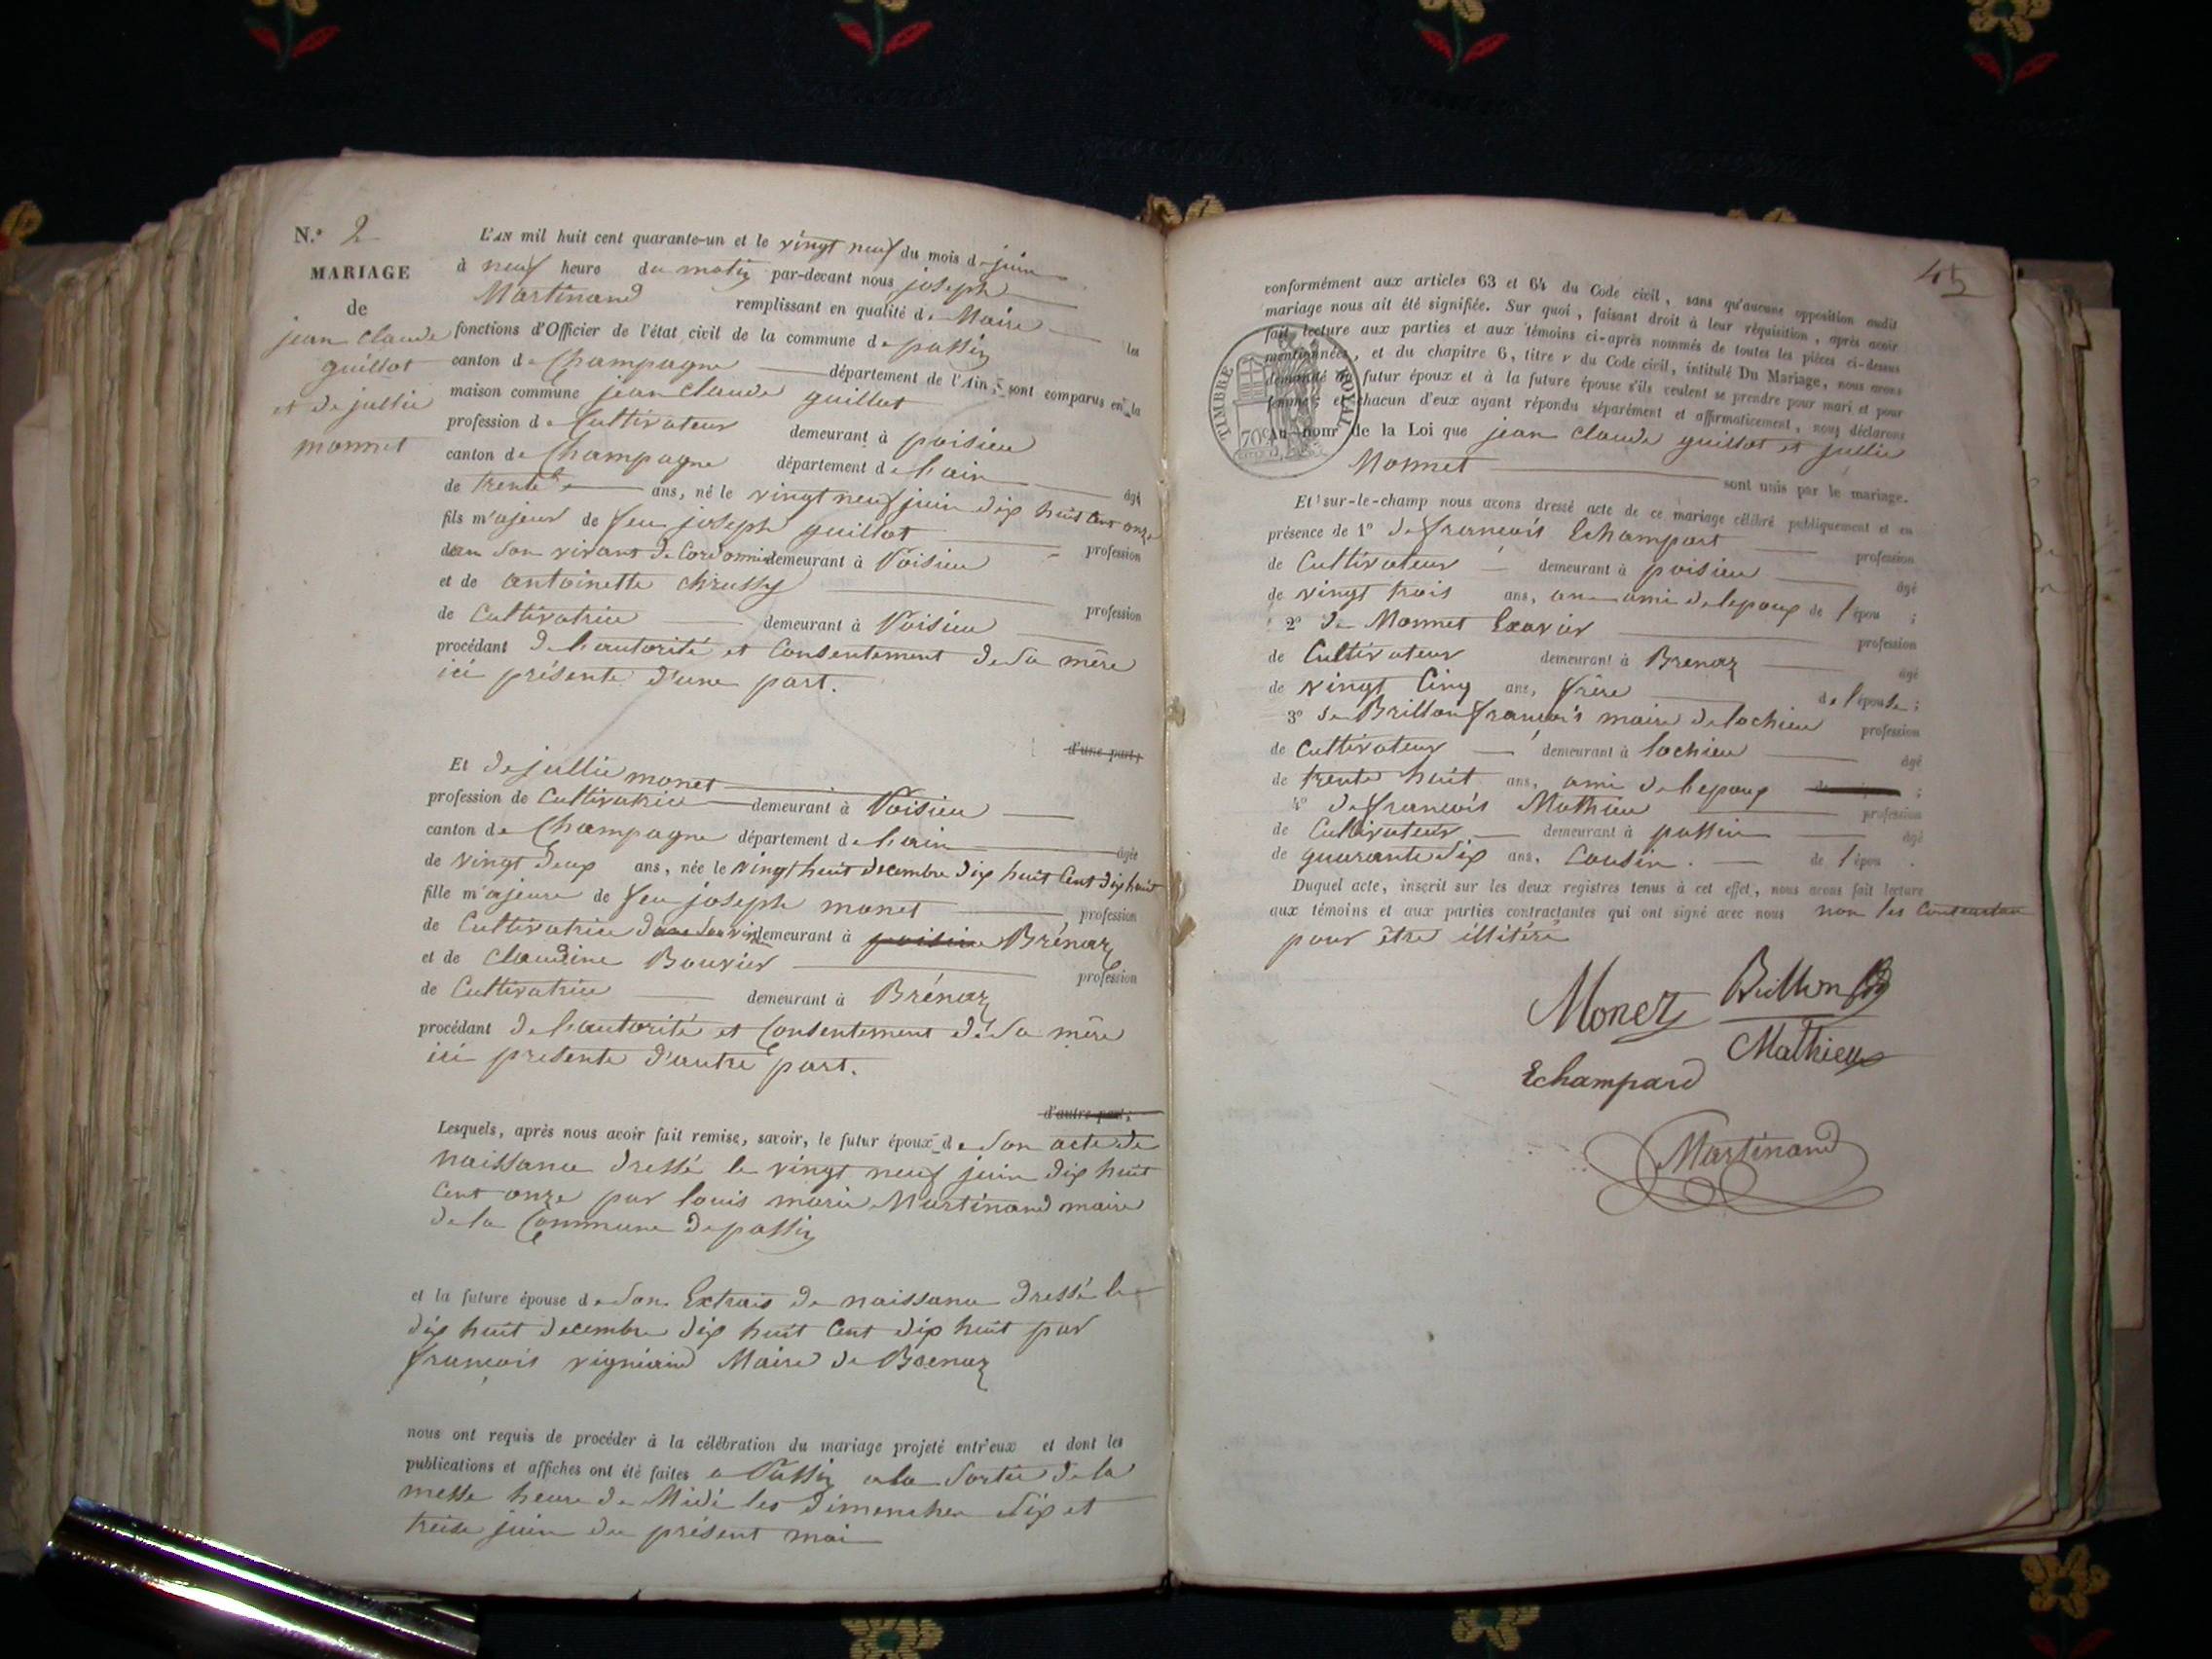 N.° 2
MARIAGE
de
jean claude
guillot
et de jullie
monnet
L'AN mil huit cent quarante-un et le vingt neuf du mois de juin
à neuf heure du matin par-devant nous joseph
Martinand remplissant en qualité de Maire les
fonctions d'Officier de l'état civil de la commune de passin
canton de Champagne département de l'Ain, sont comparus en la
maison commune jean claude guillot
profession de Cultivateur demeurant à poisieu
canton de Champagne département de l'ain âgé
de trente ans, né le vingt neuf juin dix huit Cent onze
fils m'ajeur de feu joseph guillot profession
de son vivant de Cordonnier demeurant à Poisieu
et de antoinette chrussy profession
de Cultivatrice demeurant à Poisieu
procédant de l'autorité et Consentement de sa mère
ici présente d'une part.
d'une part;
Et de jullie monet
profession de Cultivatrice demeurant à Poisieu
canton de Champagne département de l'ain âgée
de vingt deux ans, née le vingt huit decembre dix huit Cent dix huit
fille m'ajeure de feu joseph monet profession
de Cultivatrice demeurant à poisieu Brénaz
et de Claudine Bouvier profession
de Cultivatrice demeurant à Brénaz
procédant de l'autorité et Consentement de sa mère
ici presente d'autre part.
d'autre part;
Lesquels, après nous avoir fait remise, savoir, le futur époux de son acte de
naissance dressé le vingt neuf juin dix huit
Cent onze par louis marie Martinand maire
de la Commune de passin
et la future épouse de son Extrais de naissance dressé le
dix huit decembre dix huit Cent dix huit par
françois vigniaud Maire de Brenaz
nous ont requis de procéder à la célébration du mariage projeté entr'eux et dont les
publications et affiches ont été faites a Passin a la sortie de la
messe heure de Midi les dimenches six et
treise juin du présent moi
45
conformément aux articles 63 et 64 du Code civil, sans qu'aucune opposition audit
mariage nous ait été signifiée. Sur quoi, faisant droit à leur réquisition, après avoir
fait lecture aux parties et aux témoins ci-après nommés de toutes les pièces ci-dessus
mentionnées, et du chapitre 6, titre v du Code civil, intitulé Du Mariage, nous avons
demandé au futur époux et à la future épouse s'ils veulent se prendre pour mari et pour
femme; et chacun d'eux ayant répondu séparément et affirmativement, nous déclarons
Au nom de la Loi que jean claude guillot et jullie
Monnet sont unis par le mariage.
TIMBRE ROYAL
70 c
Et sur-le-champ nous avons dressé acte de ce mariage célébré publiquement et en
présence de 1° de francois Echampart profession
de Cultivateur demeurant à poisieu âgé
de vingt trois ans, ami de lepoux de l'épou ;
2° de Monnet Exavier profession
de Cultivateur demeurant à Brenaz âgé
de vingt Cinq ans, frère de l'épouse;
3° de Brillon francois maire de lochieu profession
de Cultivateur demeurant à lochieu âgé
de trente huit ans, ami de lepoux ;
4° de francois Mathieu profession
de Cultivateur demeurant à passin âgé
de quarante six ans, Cousin. de l'épou .
Duquel acte, inscrit sur les deux registres tenus à cet effet, nous avons fait lecture
aux témoins et aux parties contractantes qui ont signé avec nous non les Contractan
pour être illitéré
Monet Brillon
Mathieu
Echampard
Martinand